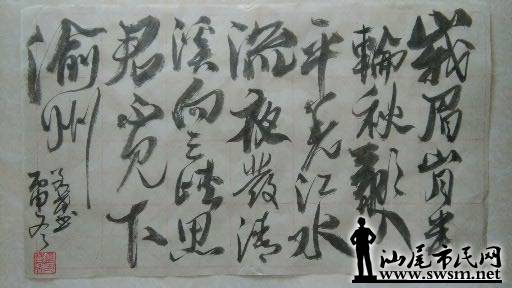 峩眉山月半
輪秋影入
平羌江水
流夜發清
溪向三峽思
君不見下
渝州
汕尾市民网
www.swsm.net